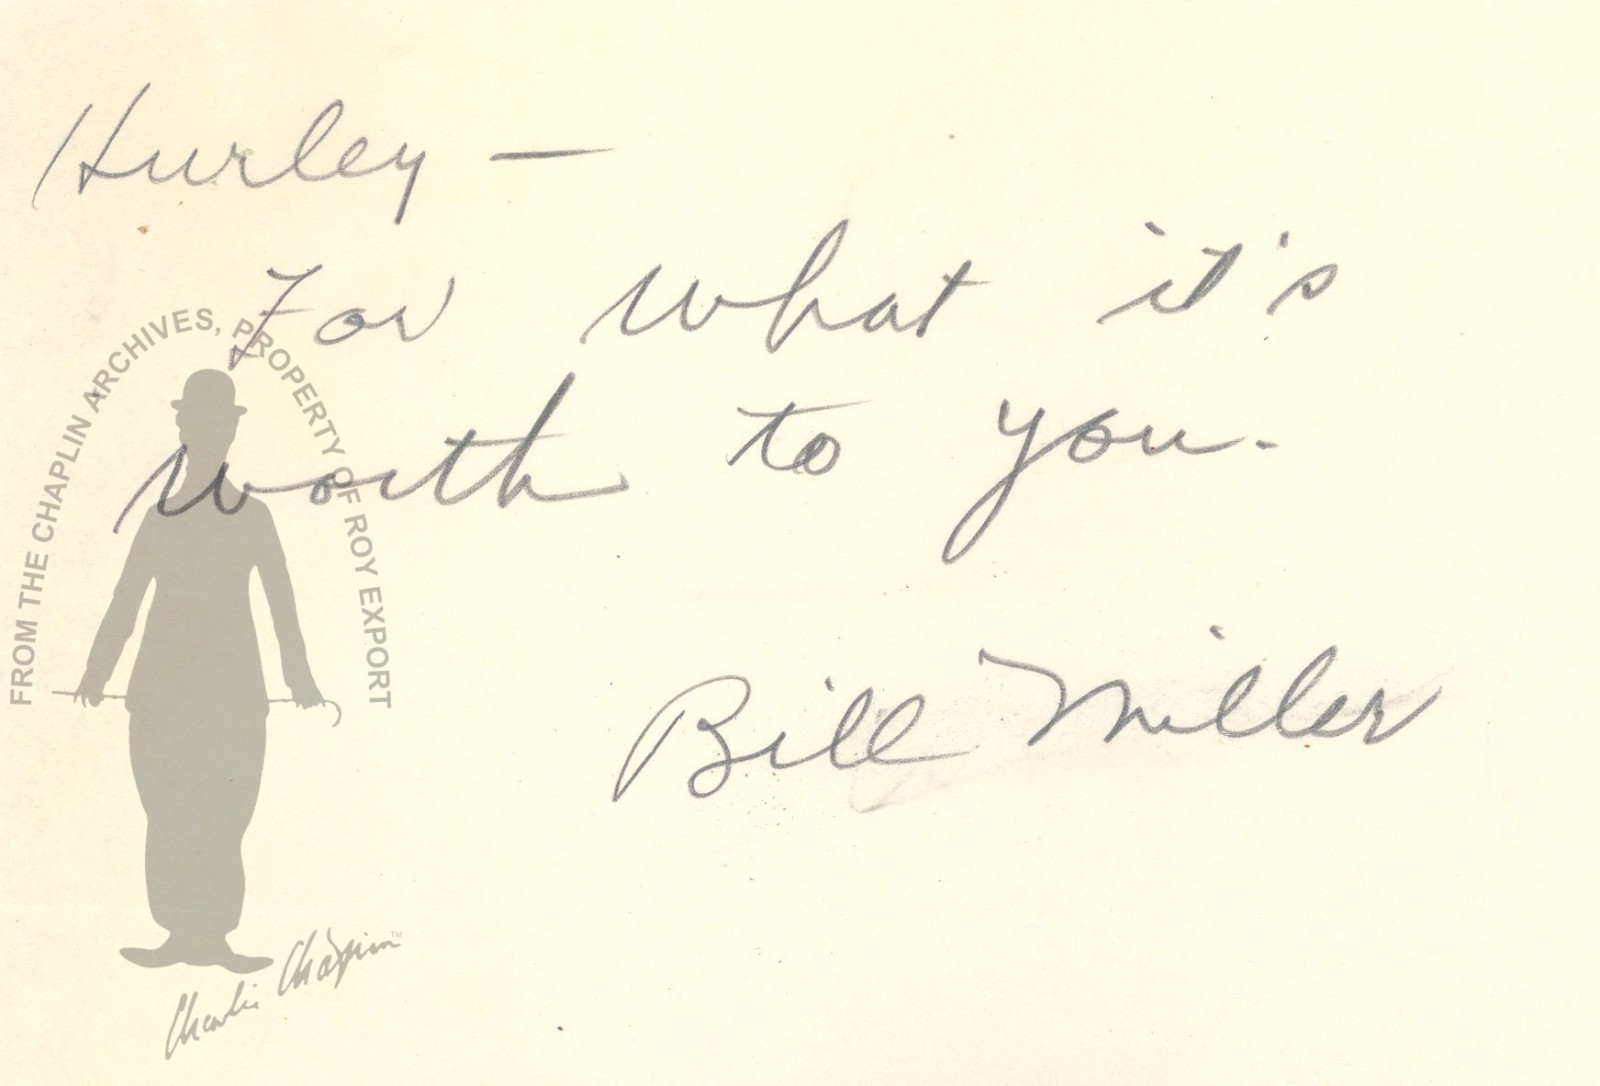 Hurley —
For what it's
worth to you.
Bill Miller
FROM THE CHAPLIN ARCHIVES, PROPERTY OF ROY EXPORT
Charlie Chaplin™